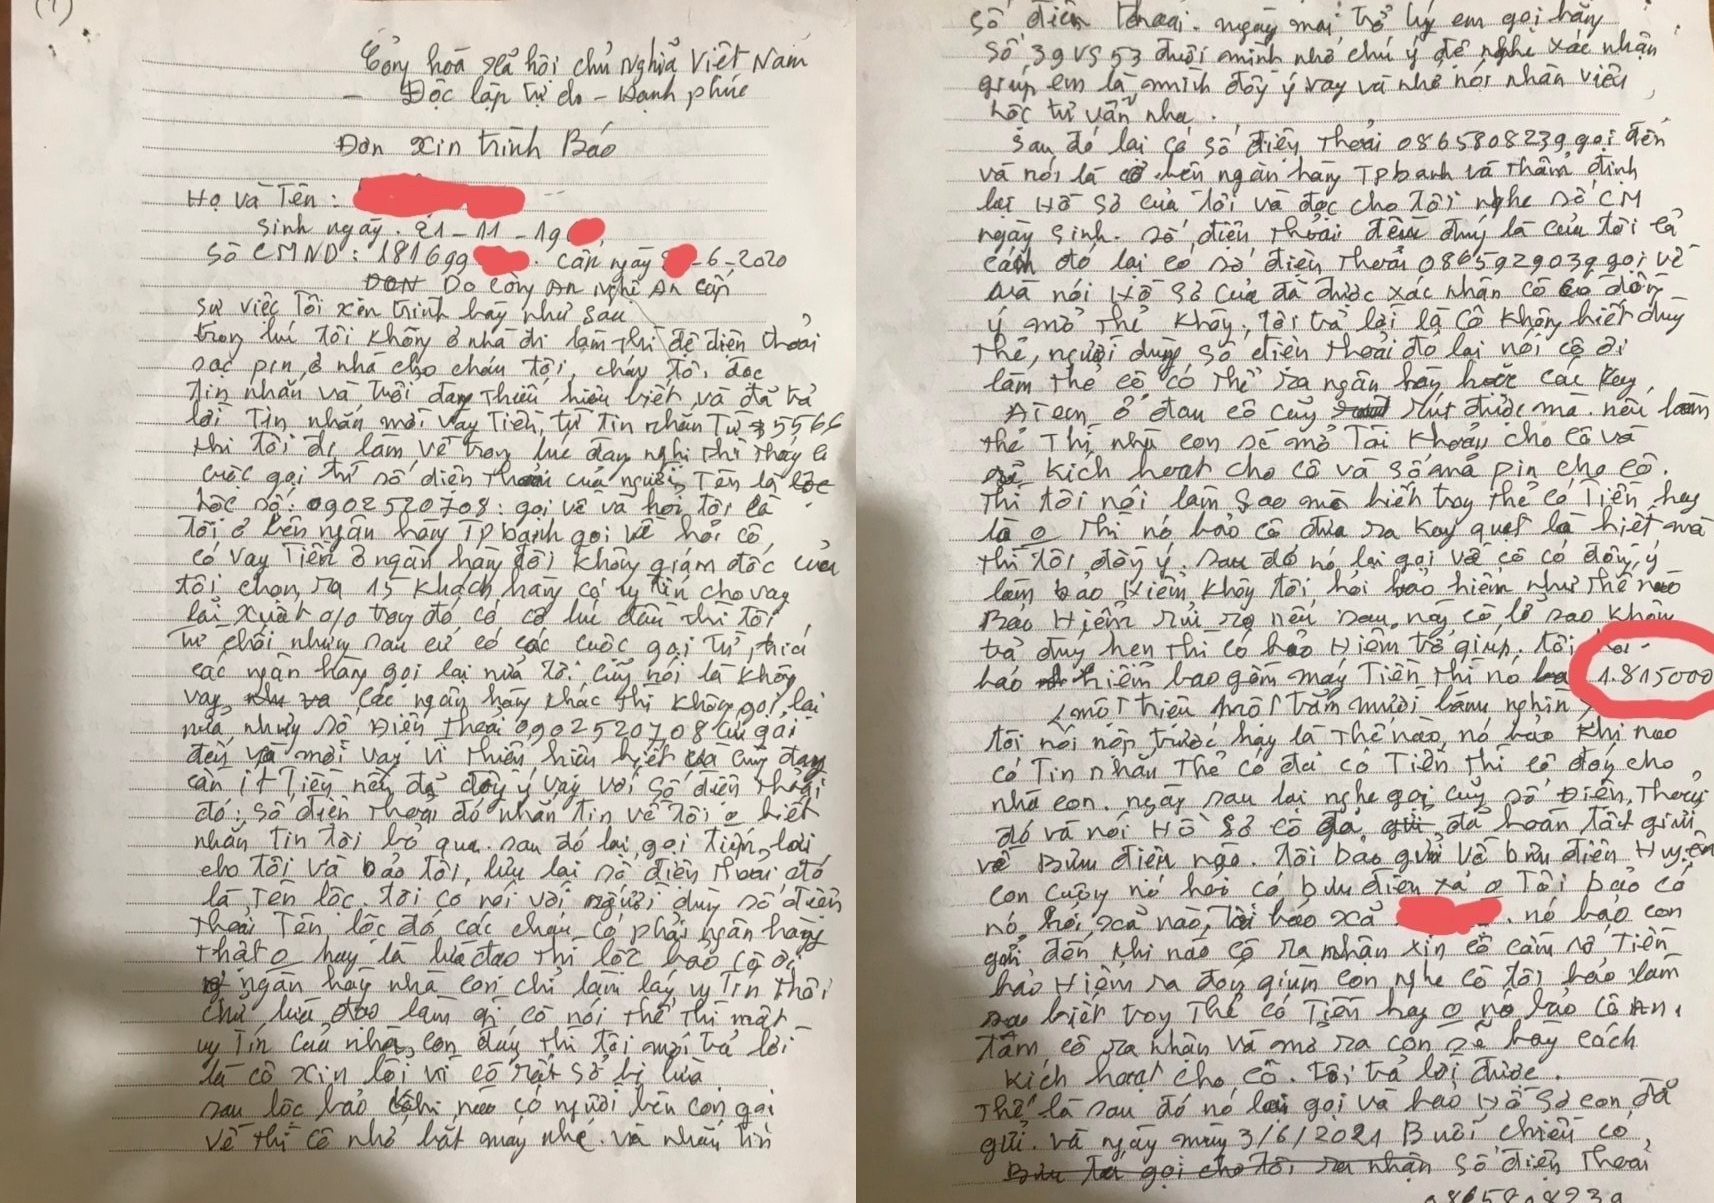 (1)
Cộng hoà xã hội chủ nghĩa Việt Nam
- Độc lập tự do - Hạnh phúc
Đơn xin trình Báo
Họ và Tên :
Sinh ngày. 21-11-19
Số CMND: 181699 . cấn ngày -6-2020
Do Công An Nghệ An cấp
sự việc Tôi xin trình bày như sau
trong lúc tôi không ở nhà đi làm thì để điện thoải
sạc pin ở nhà cho cháu tôi, cháu tôi đọc
tin nhắn và tuổi đang thiếu hiểu biết và đã trả
lời Tin nhắn mời vay Tiền, từ tin nhắn Từ 5566
khi tôi đi làm về trong lúc đang nghỉ thì thấy có
cuộc gọi từ số điện thoải của người Tên là
lộc số: 0902520708: gọi về và hỏi tôi là
tôi ở bên ngân hàng TPbanh gọi về hỏi cô
có vay Tiền ở ngân hàng tôi không giám đốc của
tôi chọn ra 15 khách hàng có uy tín cho vay
lãi xuất 0/0 trong đó có cô lúc đầu thì tôi
từ chối nhưng sau cứ có các cuộc gọi từ phía
các ngân hàng gọi lại nữa tôi cũng nói là không
vay, các ngân hàng khác thì không gọi lại
nữa, nhưng số điện thoại 0902520708 cứ gọi
đến và mời vay vì thiếu hiểu biết và cũng đang
cần ít Tiền nên đã đồng ý vay với số điện thoại
đó: số điện thoải đó nhắn tin về tôi o biết
nhắn tin tôi bỏ qua. sau đó lại gọi tiếp lời
cho tôi và bảo tôi, lưu lại số điện thoại đó
là Tên lộc. tôi có nói với người dùng số điện
thoải Tên lộc đó các cháu có phải ngân hàng
thật o hay là lừa đảo thì lộc bảo cô ơi
ngân hàng nhà con chỉ làm lấy uy Tín thôi
chứ lừa đảo làm gì cô nói thế thì mất
uy Tín của nhà con đúng thì tôi mới trả lời
là cô xin lỗi vì cô rất sợ bị lừa
sau lộc bảo khi nào có người bên con gọi
về thì cô nhớ bắt máy nhé. và nhắn tin
số điện thoại. ngày mai trợ lý em gọi bằng
số 39 vs 53 đuôi mình nhớ chú ý để nghe xác nhận
giúp em là mình đồng ý vay và nhớ nói nhân viên
lộc tư vấn nha.
Sau đó lại có số điện thoải 0865808239 gọi đến
và nói là ở bên ngân hàng TPbanh và thẩm định
lại Hồ sơ của tôi và đọc cho tôi nghe số CM
ngày sinh. số điện thoải đều đúng là của tôi cả
đó lại có số điện thoải 0865929039 gọi về
và nói Hồ sơ của đã được xác nhận cô có đồng
ý mở thẻ không, tôi trả lời là cô không biết dùng
thẻ, người dùng số điện thoải đó lại nói cô ơi
làm thẻ cô có thể ra ngân hàng hoặc các key
Ateem ở đau cô cũng rút được mà. nếu làm
thẻ thì nhà con sẽ mở tài khoản cho cô và
kích hoạt cho cô và số mã pin cho cô.
thì tôi nói làm sao mà biết trong thẻ có Tiền hay
là o thì nó bảo cô đưa ra key quét là biết mà
thì tôi đồng ý. sau đó nó lại gọi về cô có đồng ý
làm bảo hiểm không tôi hỏi bảo hiểm như thế nào
Bảo Hiểm rủi ro nếu sau này cô lỡ sao không
trả đúng hẹn thì có bảo Hiểm trợ giúp. tôi hỏi
bảo hiểm bao gồm mấy Tiền thì nó 1.815000
(một triệu một trăm mười lăm nghìn)
tôi nói nộp trước hay là thế nào, nó bảo khi nào
có Tin nhắn thẻ cô đã có Tiền thì cô đóng cho
nhà con. ngày sau lại nghe gọi cũng số điện thoại
đó và nói Hồ sơ cô đã hoàn tất giửi
về Bưu điện nào. Tôi bảo gửi về bưu điện Huyện
con cuông nó hỏi có bưu điện xã o Tôi bảo có
nó hỏi xã nào, tôi bảo xã . nó bảo con
gửi đến khi nào cô ra nhận xin cô cầm số Tiền
bảo Hiểm ra đóng giùm con nghe cô tôi bảo làm
sao biết trong thẻ có Tiền hay o nó bảo cô An
tâm, cô ra nhận và mở ra con sẽ bày cách
kích hoạt cho cô. Tôi trả lời được.
thế là sau đó nó lại gọi và bảo Hồ sơ con đã
gửi. và ngày mùng 3/6/2021 Buổi chiều có
số điện thoải
0865808239